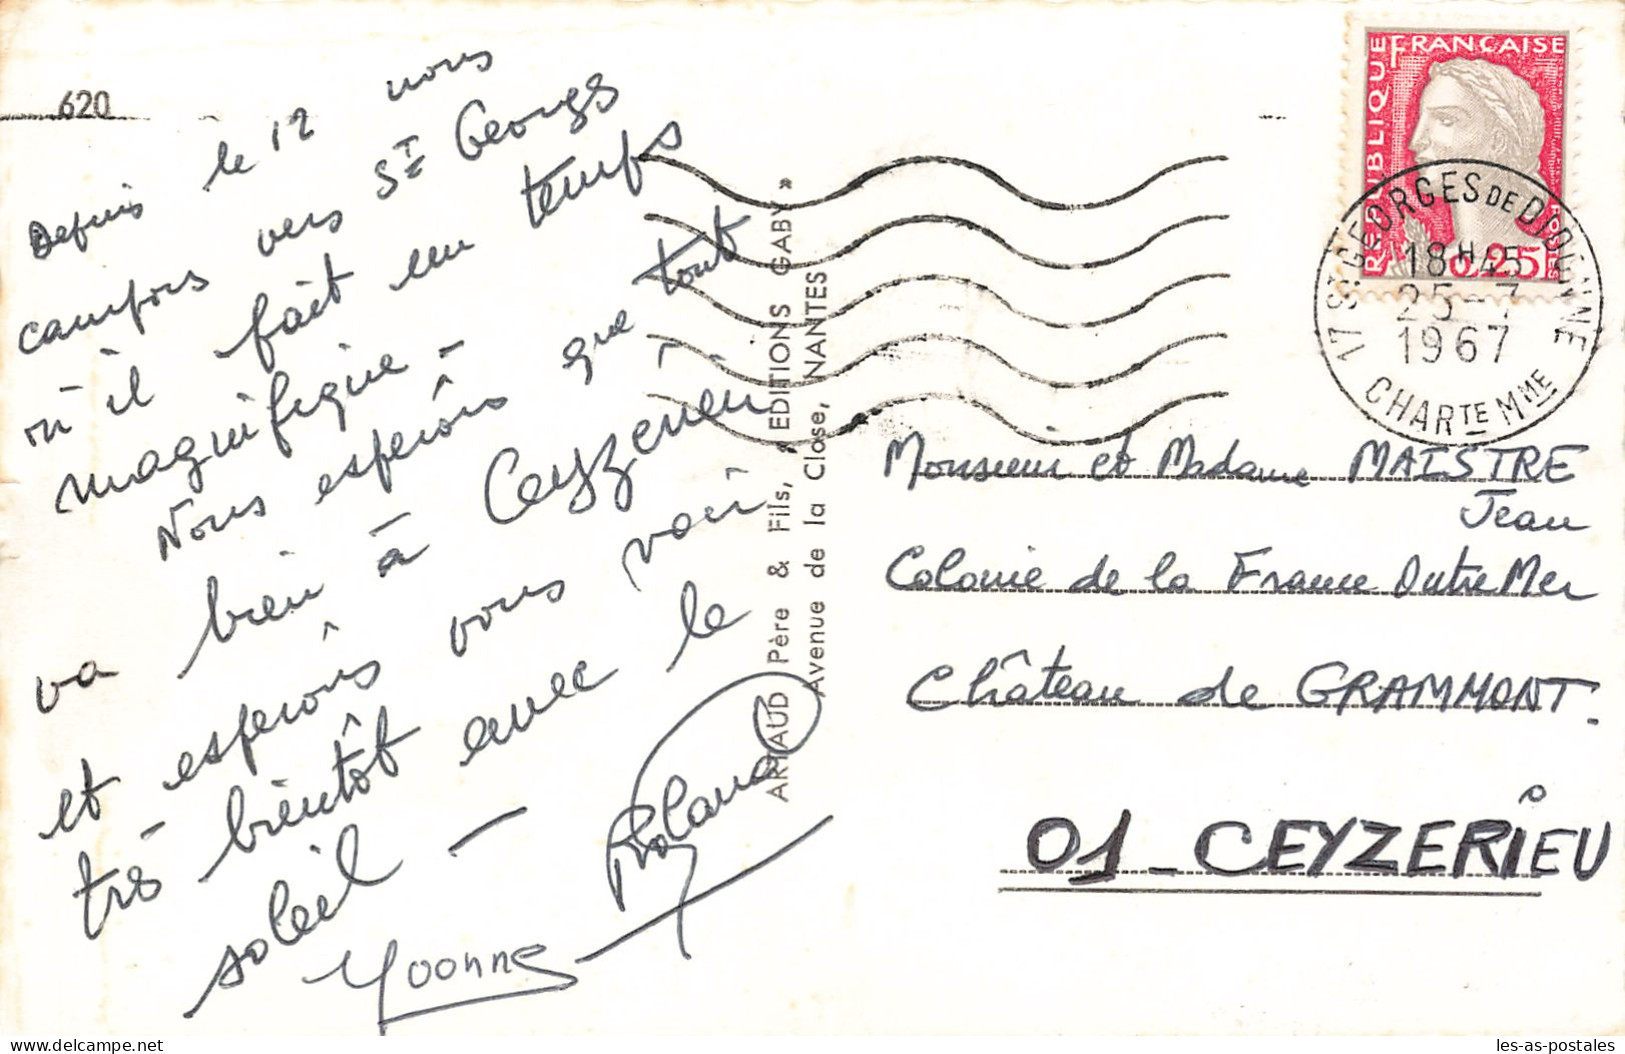 620
Depuis le 12 nous
campons vers St Georges
où il fait un temps
magnifique -
Nous espérons que tout
va bien à Ceyzerieu
et espérons vous voir
très bientôt avec le
soleil -
Yvonne
Roland
ARTAUD Père & Fils, « EDITIONS GABY »
Avenue de la Close, NANTES
REPUBLIQUE FRANÇAISE
POSTES
0,25
17 ST GEORGES DE DIDONNE
18 H 45
25-7
1967
CHARTE MME
Monsieur et Madame MAISTRE
Jean
Colonie de la France Outre Mer
Château de GRAMMONT.
01 - CEYZERIEU
les-as-postales
delcampe.net